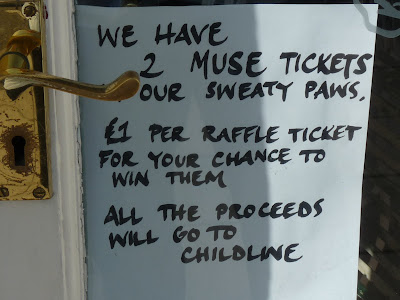 WE HAVE
2 MUSE TICKETS
OUR SWEATY PAWS.
£1 PER RAFFLE TICKET
FOR YOUR CHANCE TO
WIN THEM
ALL THE PROCEEDS
WILL GO TO
CHILDLINE